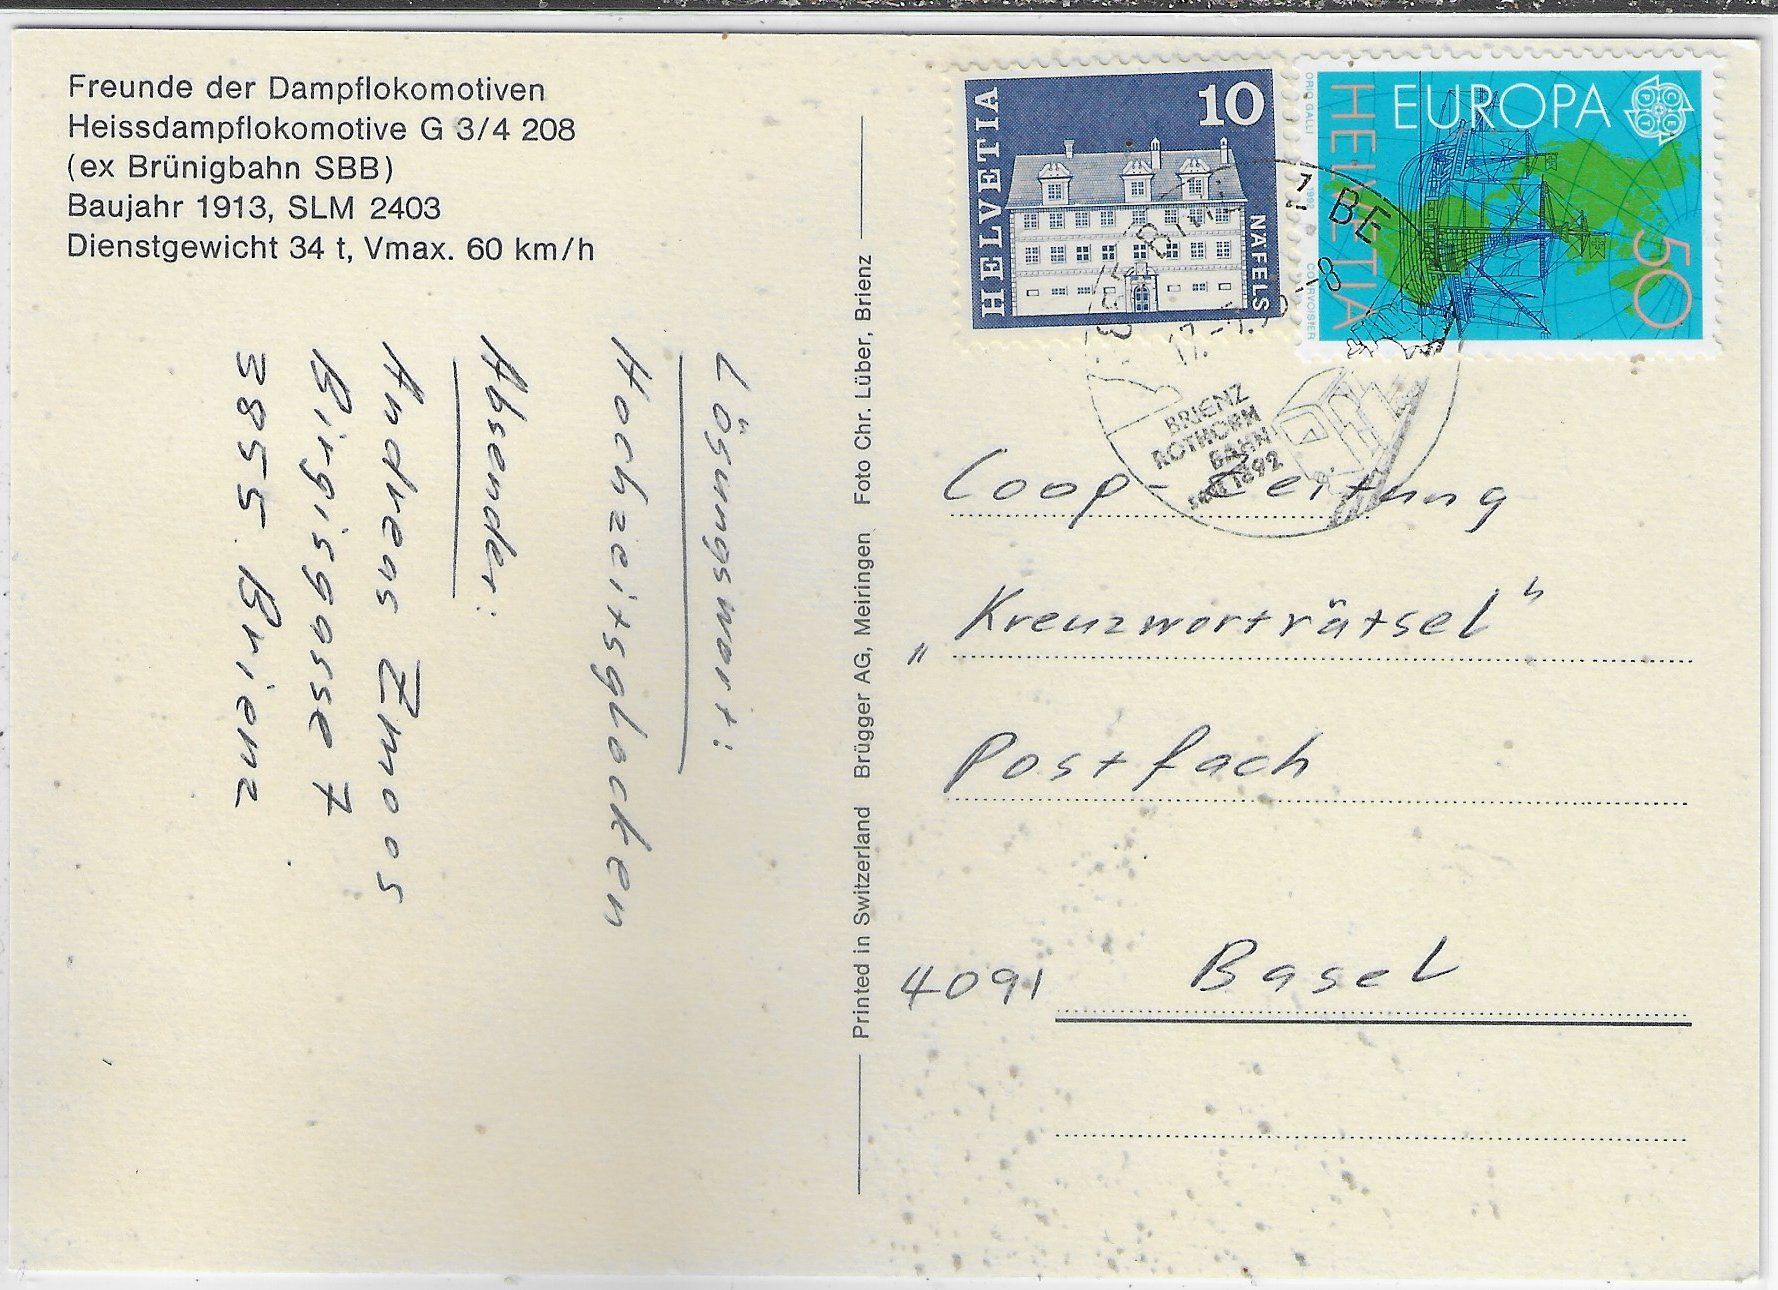 Freunde der Dampflokomotiven
Heissdampflokomotive G 3/4 208
(ex Brünigbahn SBB)
Baujahr 1913, SLM 2403
Dienstgewicht 34 t, Vmax. 60 km/h
Lösungswort:
Hochzeitsglocken
Absender:
Andreas Zmoos
Birgisgasse 7
3855 Brienz
Printed in Switzerland Brügger AG, Meiringen Foto Chr. Lüber, Brienz
HELVETIA
10
NÄFELS
EUROPA
HELVETIA
50
ORIO GALLI 1992 COURVOISIER
BE
BRIENZ
ROTHORN
BAHN
seit 1892
Coop-Zeitung
„Kreuzworträtsel"
Postfach
4091 Basel